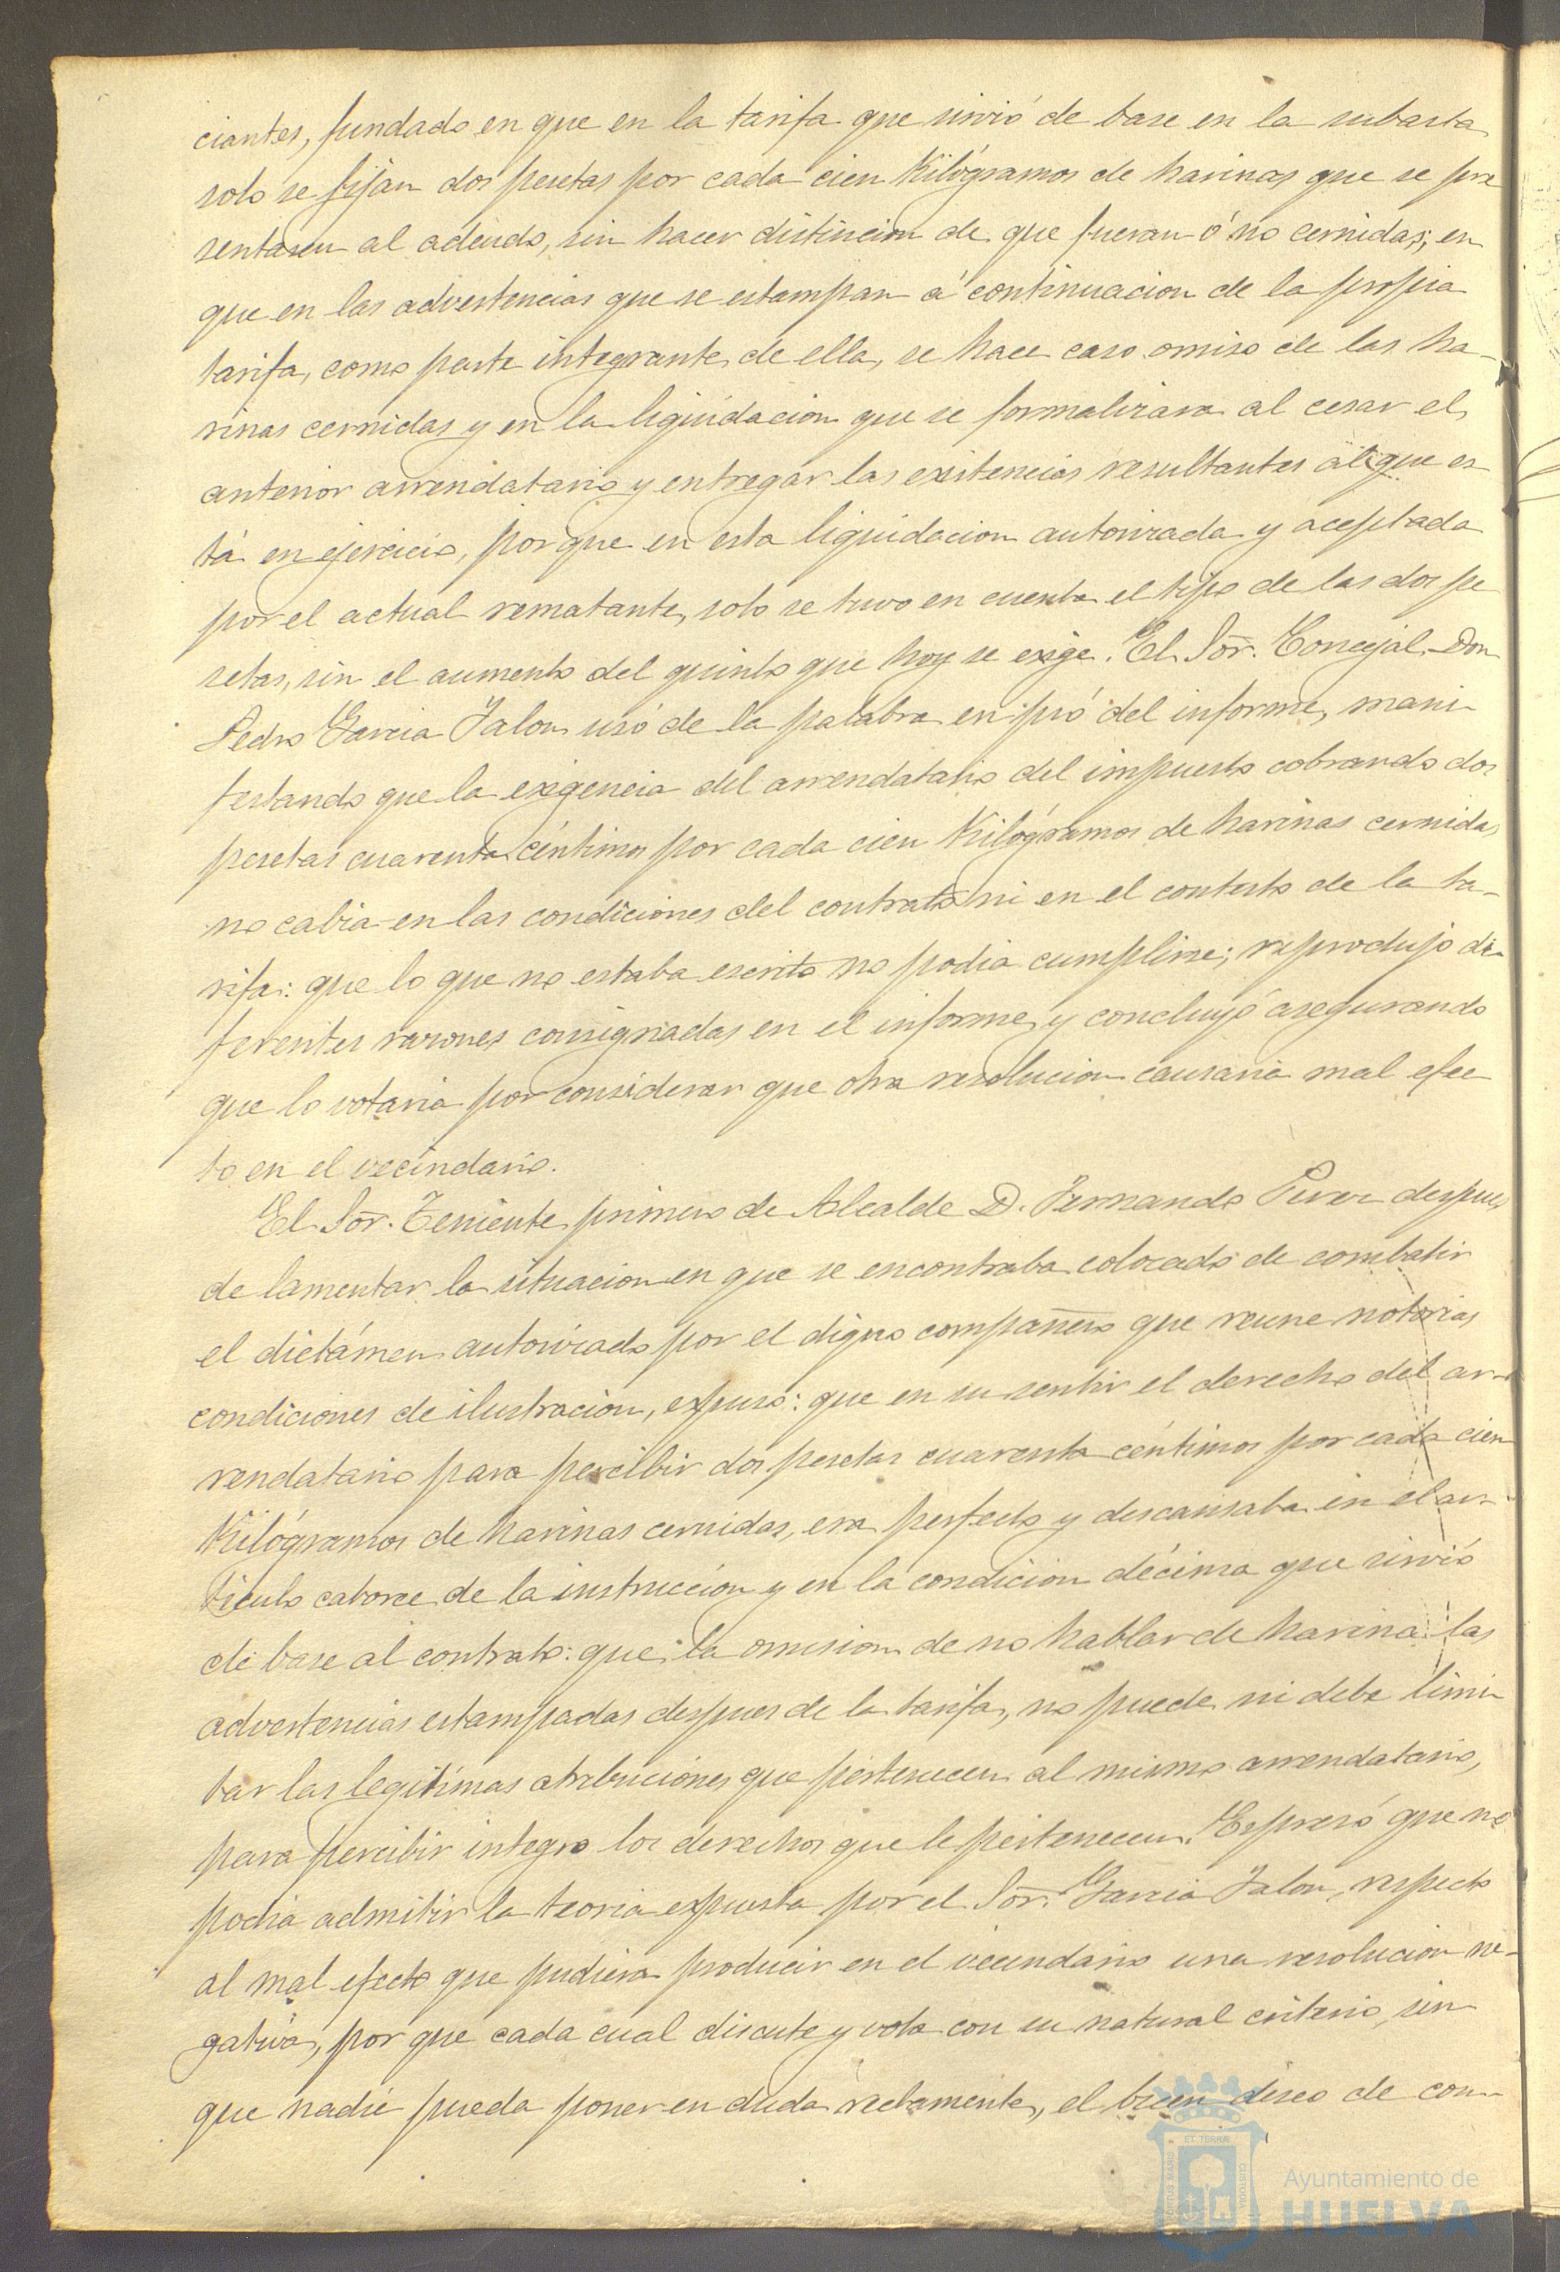 ciantes, fundado en que en la tarifa que sirvió de base en la subasta
solo se fijan dos pesetas por cada cien Kilógramos de harinas que se pre
sentasen al adeudo, sin hacer distincion de que fueran ó no cernidas; en
que en las advertencias que se estampan á continuacion de la propia
tarifa, como parte integrante de ella, se hace caso omiso de las ha-
rinas cernidas y en la liquidacion que se formalizara al cesar el
anterior arrendatario y entregar las existencias resultantes al que es-
tá en ejercicio, porque en esta liquidacion autorizada y aceptada
por el actual rematante, solo se tuvo en cuenta el tipo de las dos pe
setas, sin el aumento del quinto que hoy se exige. El Sor. Concejal Don
Pedro Garcia Jalon usó de la palabra en pró del informe, mani-
festando que la exigencia del arrendatario del impuesto cobrando dos
pesetas cuarenta céntimos por cada cien Kilógramos de harinas cernidas
no cabia en las condiciones del contrato ni en el contesto de la ta-
rifa: que lo que no estaba escrito no podia cumplirse; reprodujo di-
ferentes razones consignadas en el informe, y concluyó asegurando
que lo votaria por considerar que otra resolucion causaria mal efec
to en el vecindario.
El Sor. Teniente primero de Alcalde D. Fernando Perez despues
de lamentar la situacion en que se encontraba colocado de combatir
el dictámen autorizado por el digno compañero que reune notorias
condiciones de ilustracion, expuso: que en su sentir el derecho del ar-
rendatario para percibir dos pesetas cuarenta céntimos por cada cien
Kilógramos de harinas cernidas, era perfecto y descansaba en el ar-
ticulo catorce de la instruccion y en la condicion décima que sirvió
de base al contrato: que la omision de no hablar de harina las
advertencias estampadas despues de la tarifa, no puede ni debe limi
tar las legitimas atribuciones que pertenecen al mismo arrendatario,
para percibir integro los derechos que le pertenecen. Espresó que no
podia admitir la teoria expuesta por el Sor. Garcia Jalon, respecto
al mal efecto que pudiera producir en el vecindario una resolucion ne-
gativa, por que cada cual discute y vota con su natural criterio, sin
que nadie pueda poner en duda rectamente, el buen deseo de con-
Ayuntamiento de
HUELVA